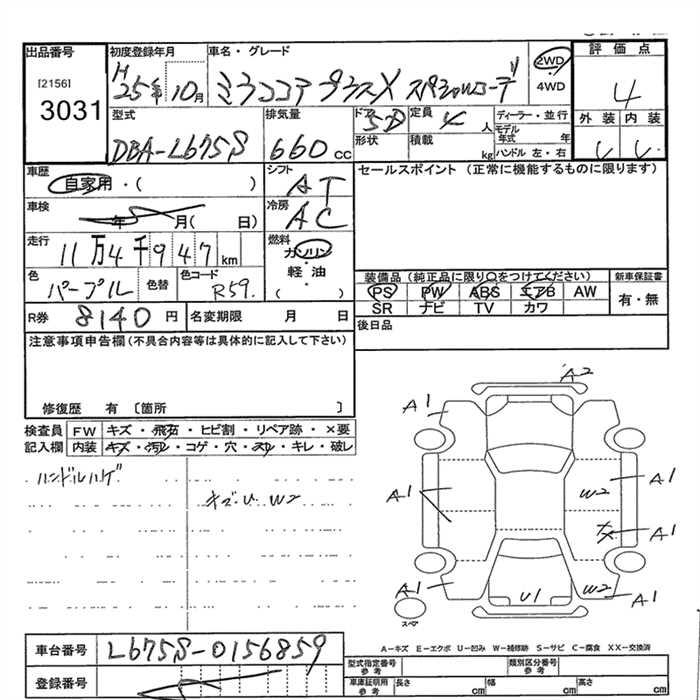 出品番号
[2156]
3031
初度登録年月
H25年10月
車名・グレード
ミラココア プラスX スペシャルコーデ
2WD
4WD
評価点
4
外装 内装
型式
DBA-L675S
排気量
660cc
ドア
5D
形状
定員
4人
積載
kg
ディーラー・並行
モデル年式 年
ハンドル 左・右
車歴
自家用・( )
シフト
AT
セールスポイント (正常に機能するものに限ります)
車検
年 月( 日)
冷房
AC
走行
11万4千947km
燃料
ガソリン
・
軽油
・
( )
色
パープル
色替
色コード
R59.
装備品(純正品に限り○をつけてください)
PS PW ABS エアB AW
SR ナビ TV カワ
新車保証書
有・無
R券
8140円
名変期限 月 日
後日品
注意事項申告欄(不具合内容等は具体的に記入して下さい)
修復歴 有 〔箇所 〕
検査員記入欄
FW キズ・飛石・ヒビ割・リペア跡・×要
内装 キズ・汚レ・コゲ・穴・スレ・キレ・破レ
ハンドルハゲ
キズ・U W2
A2
A1
A1
A1
A1
W2
A1
A1
W2
A1
U1
スペア
A-キズ E-エクボ U-凹み W-補修跡 S-サビ C-腐食 XX-交換済
車台番号
L675S-0156859
登録番号
型式指定番号
参考
類別区分番号
参考
車庫証明用
参考
長さ cm 幅 cm 高さ cm